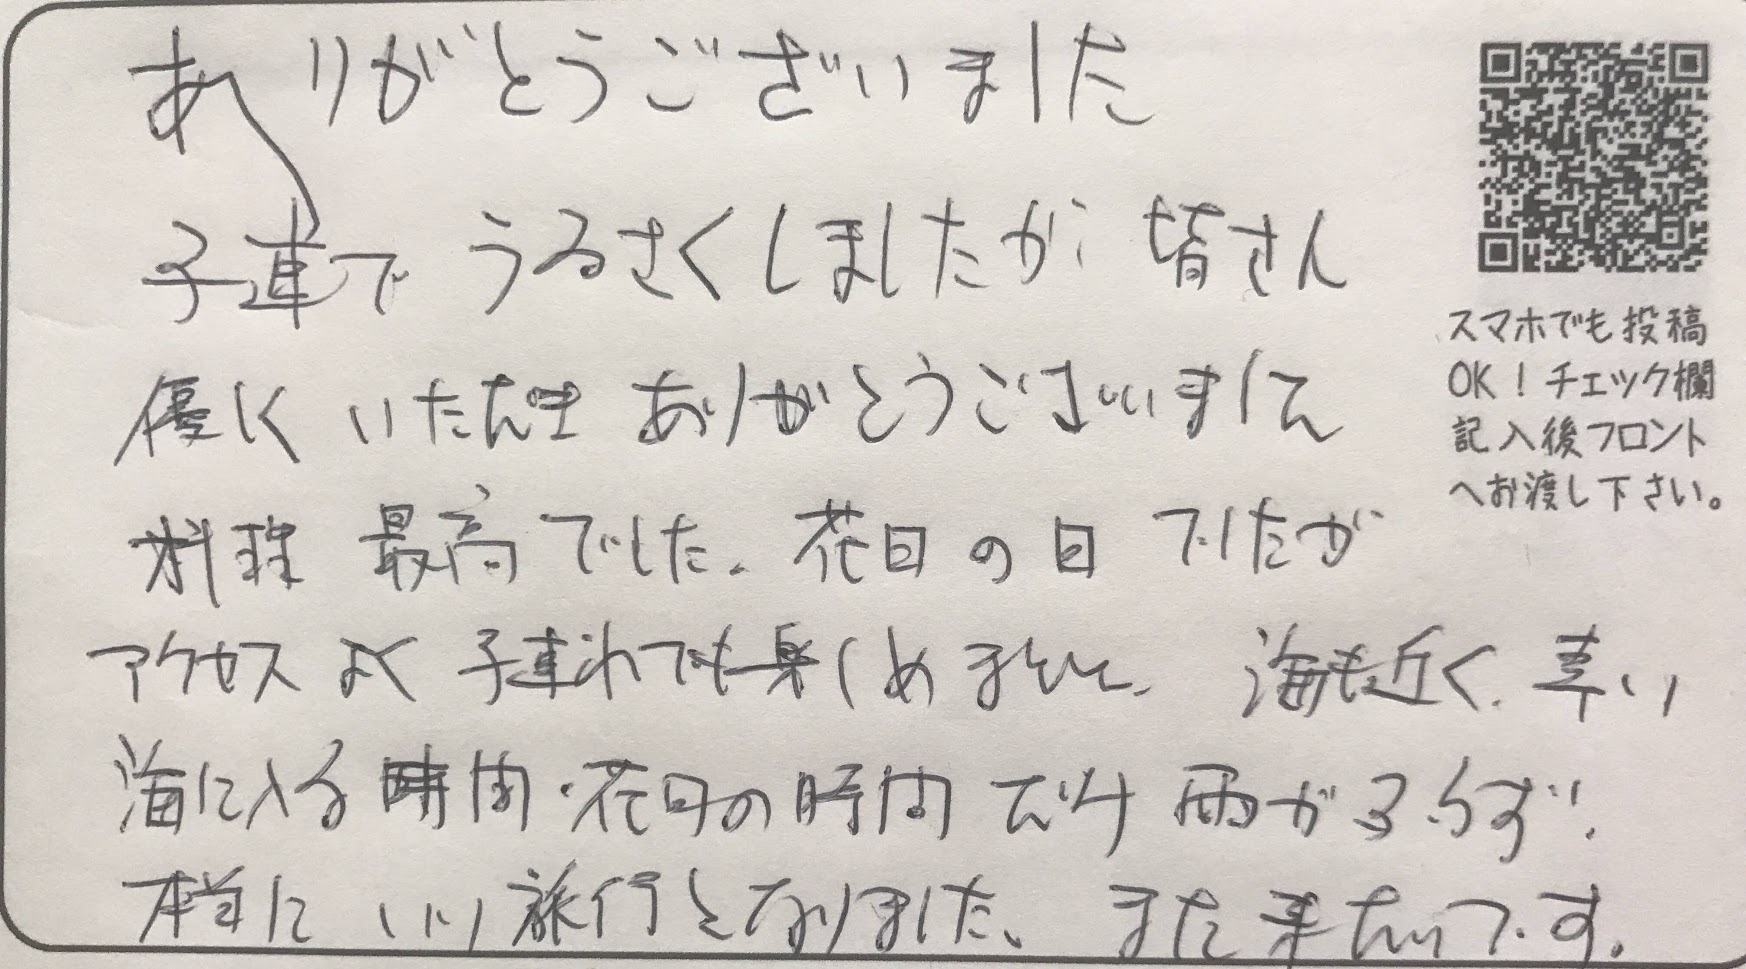 ありがとうございました
子連で うるさくしましたが 皆さん
優しく いただき ありがとうございました
料理 最高でした。花日の日 でしたが
アクセスよく 子連れでも楽しめました。海も近く、幸い
海に入る時間・花日の時間だけ 雨がふらず!
本当に いい旅行となりました。また来たいです。
スマホでも投稿
OK!チェック欄
記入後フロント
へお渡し下さい。